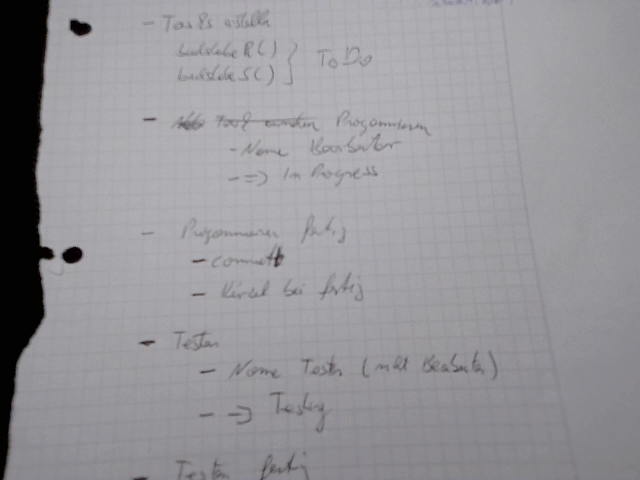 - Tasks erstellen
buchstabe R()
buchstabe S() } ToDo
- Programmieren
- Name Bearbeiter
- => In Progress
- Programmieren fertig
- commit
- Kürzel bei fertig
- Testen
- Name Tester (nicht Bearbeiter)
- => Testing
- Testen fertig